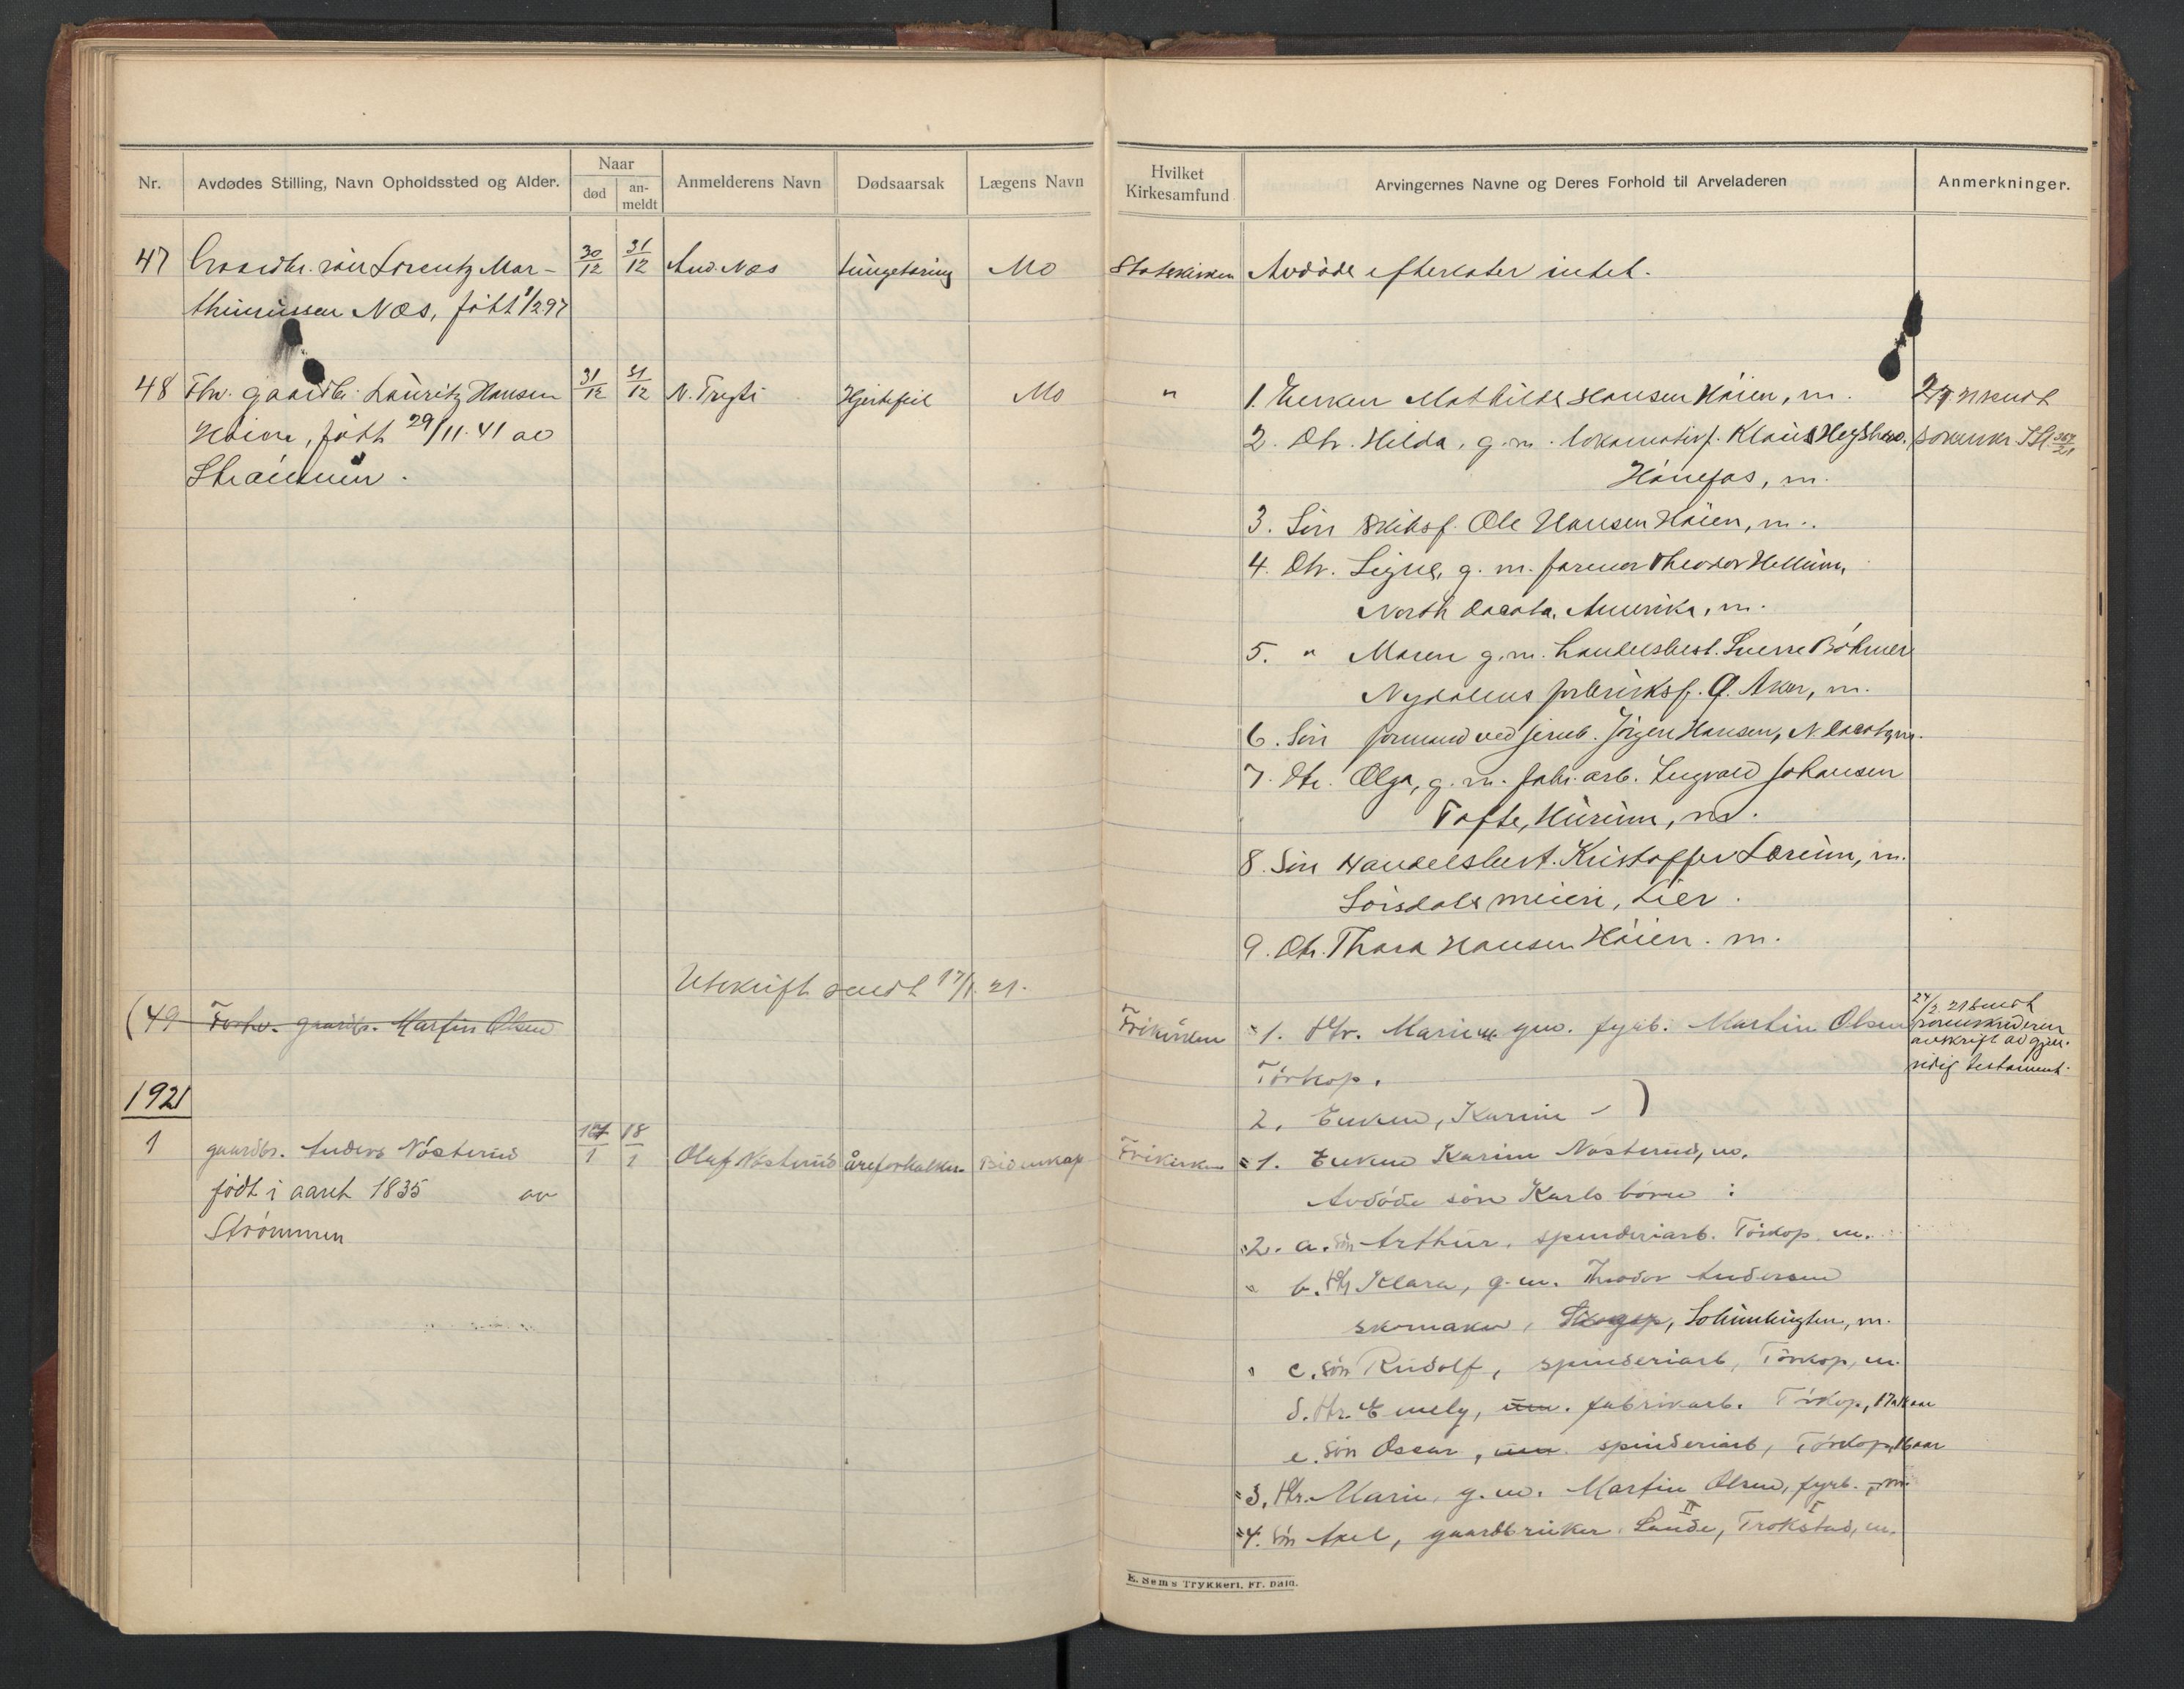 Nr.
Avdødes Stilling, Navn Opholdssted og Alder.
Naar
død
an-
meldt
Anmelderens Navn
Dødsaarsak
Lægens Navn
Hvilket
Kirkesamfund
Arvingernes Navne og Deres Forhold til Arveladeren
Anmerkninger.
47 Gaardbr. søn Lorentz Mar- 30/12 31/12 And. Næs tungetæring Mo Statskirken Avdøde efterlater intet.
thiniussen Næs, født 1/2 97
48 Fhv. gaardbr. Lauritz Hansen 31/12 31/12 N. Trygti Hjertefeil Mo " 1. Enken Mathilde Hansen Høien, m.
Høien, født 29/11.41 av 2. Dtr. Hilda, g.m. lokomotivf. Klaus
Strømmen. Hønefos, m.
3. Søn skibsf. Ole Hansen Høien, m.
4. Dtr. Signe, g.m. farmer Theodor Hellum,
North Dacota, Amerika, m.
5. " Maren g.m. handelsbest. Sverre Bøhmer
Nydalens fabriksf. Ø. Aker, m.
6. Søn formand ved jernb. Jørgen Hansen, N. Dacota, m.
7. Dtr. Olga, g.m. fabr. arb. Ingvald Johansen
Tofte, Hurum, m.
8. Søn Handelsbest. Kristoffer Lørum, m.
Sørsdals meieri, Lier.
9. Dtr. Thora Hansen Høien. m.
Utskrift sendt 17/1.21.
(49 Forhv. gaardbr. Martin Olsen Frikirken 1. Dtr. Marie gm. fyrb. Martin Olsen
24/2 21 sendt
sorenskriveren
avskrift av gjen-
sidig testament.
Tørkop.
2. Enken, Karine - )
1921
1 gaardbr. Anders Nøsterud 17/1 18/1 Olaf Nøsterud åreforkalkn. Bidenkap Frikirken 1. Enken Karine Nøsterud, m.
født i aaret 1835 av Avdøde søn Karls børn :
Strømmen
2. a. Søn Arthur, spinderiarb. Tørkop, m.
" b. Dtr Klara, g.m. Theodor Andersen
skomaker, Solumbugten, m.
" c. Søn Rudolf, spinderiarb, Tørkop, m.
d. Dtr. Emely, um. fabrikarb. Tørkop,
e. Søn Oscar, um. spinderiarb, Tørkop, 16 aar
3. Dtr. Marie, g.m. Martin Olsen, fyrb. m.
4. Søn Axel, gaardbruker Sande, Trøkstad, m.
E. Sem's Trykkeri, Fr. hald.